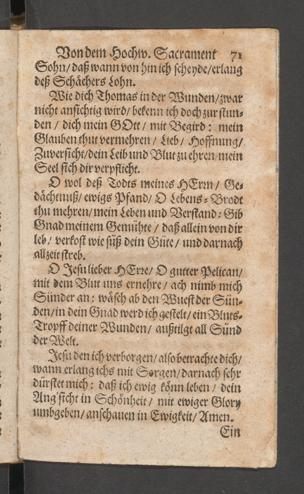 Von dem Hochw. Sacrament 71
Sohn/ daß wann von hin ich scheyde/ erlang
deß Schächers Lohn.
Wie dich Thomas in der Wunden/ zwar
nicht ansichtig wird/ bekenn ich doch zur stun-
den / dich mein GOtt / mit Begird: mein
Glauben thut vermehren / Lieb / Hoffnung/
Zuversicht/ dein Leib und Blut zu ehren/ mein
Seel sich dir verpflicht.
O wol deß Todts meines HErrn / Ge-
dächtnuß/ ewigs Pfand/ O Lebens-Brodt
thu mehren/ mein Leben und Verstand: Gib
Gnad meinem Gemühte / daß allein von dir
leb / verkost wie süß dein Güte / und darnach
allzeit streb.
O Jesu lieber HErre/ O gutter Pelican/
mit dem Blut uns ernehre / ach nimb mich
Sünder an: wäsch ab den Wuest der Sün-
den/ in dein Gnad werd ich gestelt/ ein Bluts-
Tropff deiner Wunden / außtilgt all Sünd
der Welt.
Jesu den ich verborgen/ also betrachte dich/
wann erlang ichs mit Sorgen/ darnach sehr
dürstet mich: daß ich ewig könn leben / dein
Ang'sicht in Schönheit / mit ewiger Glory
umbgeben/ anschauen in Ewigkeit/ Amen.
Ein